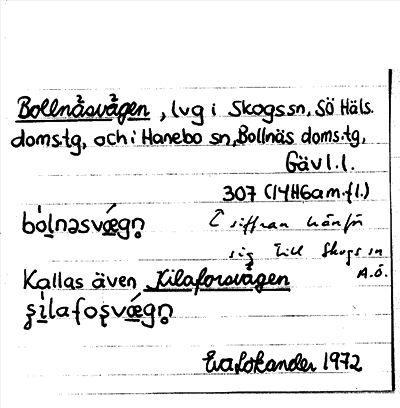 Bollnäsvägen, lvg i Skogs sn, Sö Häls.
doms.tg, och i Hanebo sn, Bollnäs doms.tg,
Gävl.l.
307 (14H6a m.fl.)
bó̤lnəsvǽgn̥ siffran hänför
sig till Skogs sn
Kallas även Kilaforsvägen A.Ö.
ʂìlafoʂvǽgn̥
Eva Lökander 1972